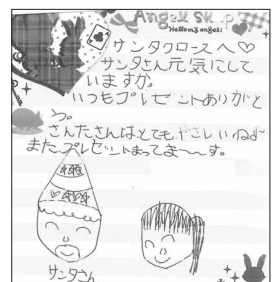 Angel SK P
Hello my angel
サンタクロースへ♡
サンタさん元気にして
いますか。
いつもプレゼントありがと
う。
さんたさんはとてもやさしいね♪
またプレゼントまってま〜〜す。
サンタさん